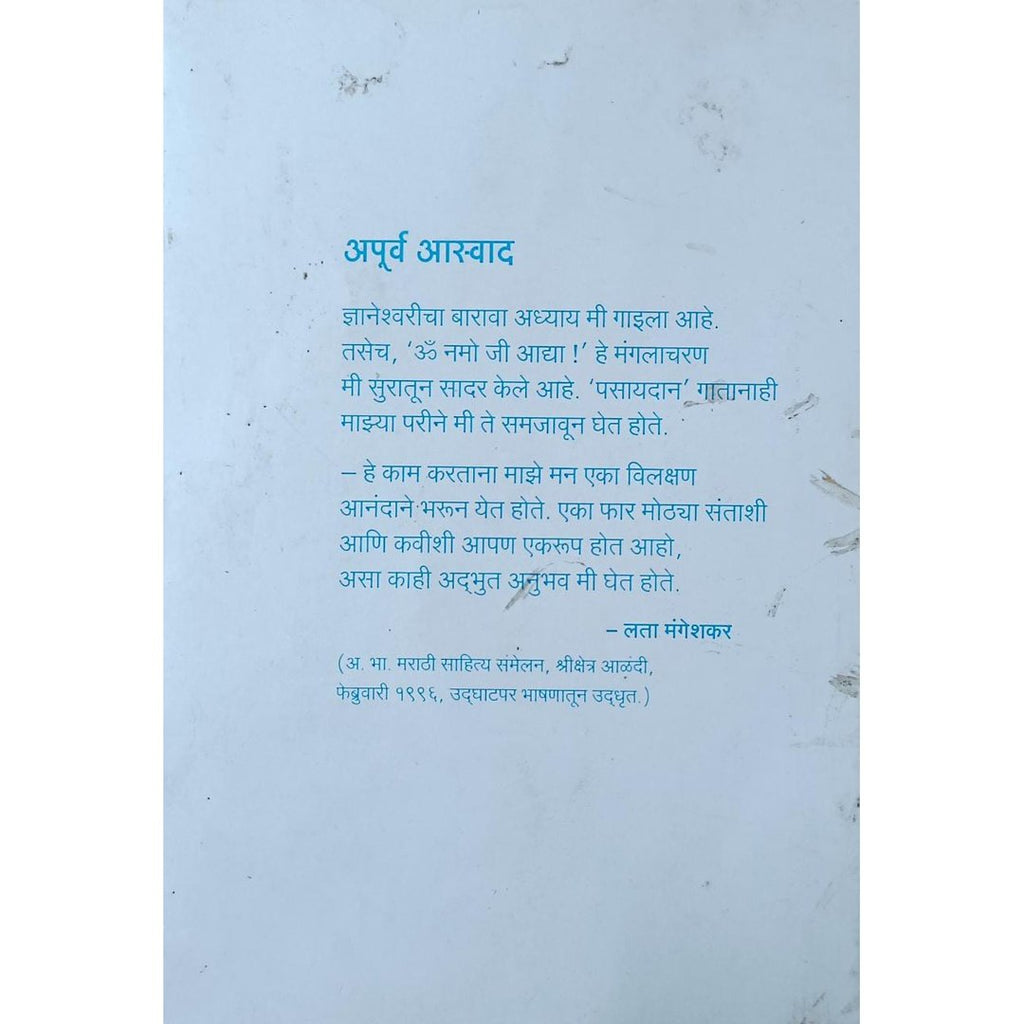 अपूर्व आस्वाद
ज्ञानेश्वरीचा बारावा अध्याय मी गाइला आहे.
तसेच, ‘ॐ नमो जी आद्या !’ हे मंगलाचरण
मी सुरातून सादर केले आहे. ‘पसायदान’ गातानाही
माझ्या परीने मी ते समजावून घेत होते.
– हे काम करताना माझे मन एका विलक्षण
आनंदाने भरून येत होते. एका फार मोठ्या संताशी
आणि कवीशी आपण एकरूप होत आहो,
असा काही अद्‌भुत अनुभव मी घेत होते.
– लता मंगेशकर
(अ. भा. मराठी साहित्य संमेलन, श्रीक्षेत्र आळंदी,
फेब्रुवारी १९९६, उद्‌घाटपर भाषणातून उद्‌धृत.)